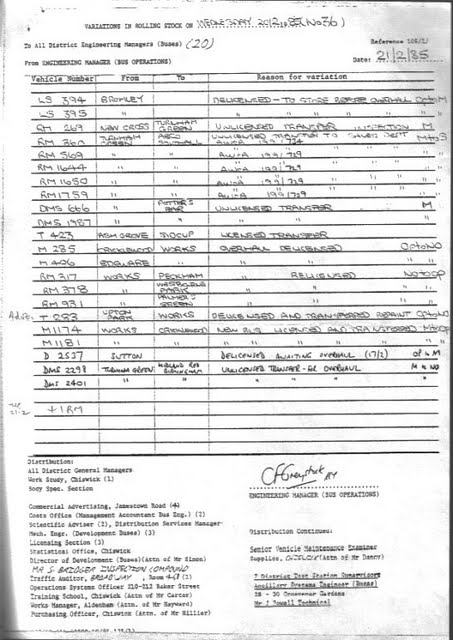 VARIATIONS IN ROLLING STOCK ON WEDNESDAY 20.2.85 (No 36)
Reference 105/2/
To All District Engineering Managers (Buses) (20)
From ENGINEERING MANAGER (BUS OPERATIONS) Date: 21/2/85
Vehicle Number From To Reason for variation
LS 394 BROMLEY DELICENSED - TO STORE BEFORE OVERHAUL OPTO M
LS 395 " " " " "
RM 269 NEW CROSS TURNHAM GREEN UNLICENSED TRANSFER INSPECTION M
RM 360 TURNHAM GREEN AEC SOUTHALL UNLICENSED TRANSFER TO
RM 569 " " 199/729 "
RM 1644 " " 199/729 "
RM 1650 " " 199/729 "
RM 1759 " " 199/729 "
DMS 666 " POTTERS BAR UNLICENSED TRANSFER M
DMS 1987 " " " " "
T 423 ASH GROVE SIDCUP LICENSED TRANSFER
M 285 CRICKLEWOOD WORKS OVERHAUL DELICENSED OPTO NO
M 406 EDGWARE " " " "
RM 317 WORKS PECKHAM " RELICENSED NO TO OP
RM 378 " WESTBOURNE PARK " " "
RM 931 " PALMERS GREEN " " "
T 283 UPTON PARK WORKS DELICENSED AND TRANSFERRED REPAINT OPTO NO
M1174 WORKS CRICKLEWOOD NEW BUS LICENSED AND TRANSFERRED
M1181 " " " " " " "
D 2537 SUTTON DELICENSED AWAITING OVERHAUL (17/2) OP to M
DMS 2298 TURNHAM GREEN MIDLAND RED BIRMINGHAM UNLICENSED TRANSFER - OVERHAUL M to NO
DMS 2401 " " " " " "
21-2 + 1 RM
Distribution:
All District General Managers
Work Study, Chiswick (1)
Socy Spec. Section
ENGINEERING MANAGER (BUS OPERATIONS)
Commercial Advertising, Jamestown Road (4)
Costs Office (Management Accountant Bus Eng.) (2)
Scientific Adviser (2), Distribution Services Manager
Mech. Engr. (Development Buses) (3)
Licensing Section (3)
Statistical Office, Chiswick
Director of Development (Buses)(Attn of Mr Simon)
MR S BRIDGER INSPECTION COMPOUND
Traffic Auditor, BROADWAY, Room 418 (2)
Operations Systems Officer 210-212 Baker Street
Training School, Chiswick (Attn of Mr Carter)
Works Manager, Aldenham (Attn. of Mr Hayward)
Purchasing Officer, Chiswick (Attn of Mr Hillier)
Distribution Continues:
Senior Vehicle Maintenance Examiner
Supplies, CHISWICK (Attn of Mr Dancy)
7 District Test Station Supervisors
Ancillary Systems Engineer (Buses)
28 - 30 Grosvenor Gardens
Mr J Powell Technical